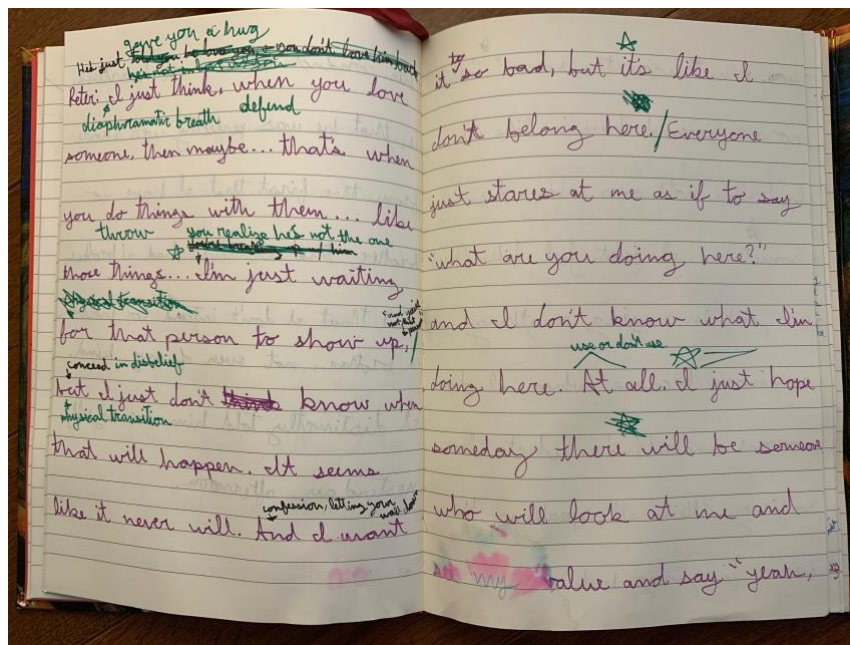 gave you a hug
He's just
you don't love him back
Peter: I just think, when you love
diaphramatic breath defend
someone, then maybe... that's when
you do things with them... like
throw you realize he's not the one
him
those things... I'm just waiting
physical transition
for that person to show up.
conceed in disbelief
but I just don't think know when
physical transition
that will happen. It seems
confession, letting your wall down
like it never will. And I want
it to so bad, but it's like I
don't belong here./Everyone
just stares at me as if to say
"what are you doing here?"
and I don't know what I'm
use or don't use
doing here. At all. I just hope
someday there will be someone
who will look at me and
my value and say "yeah,